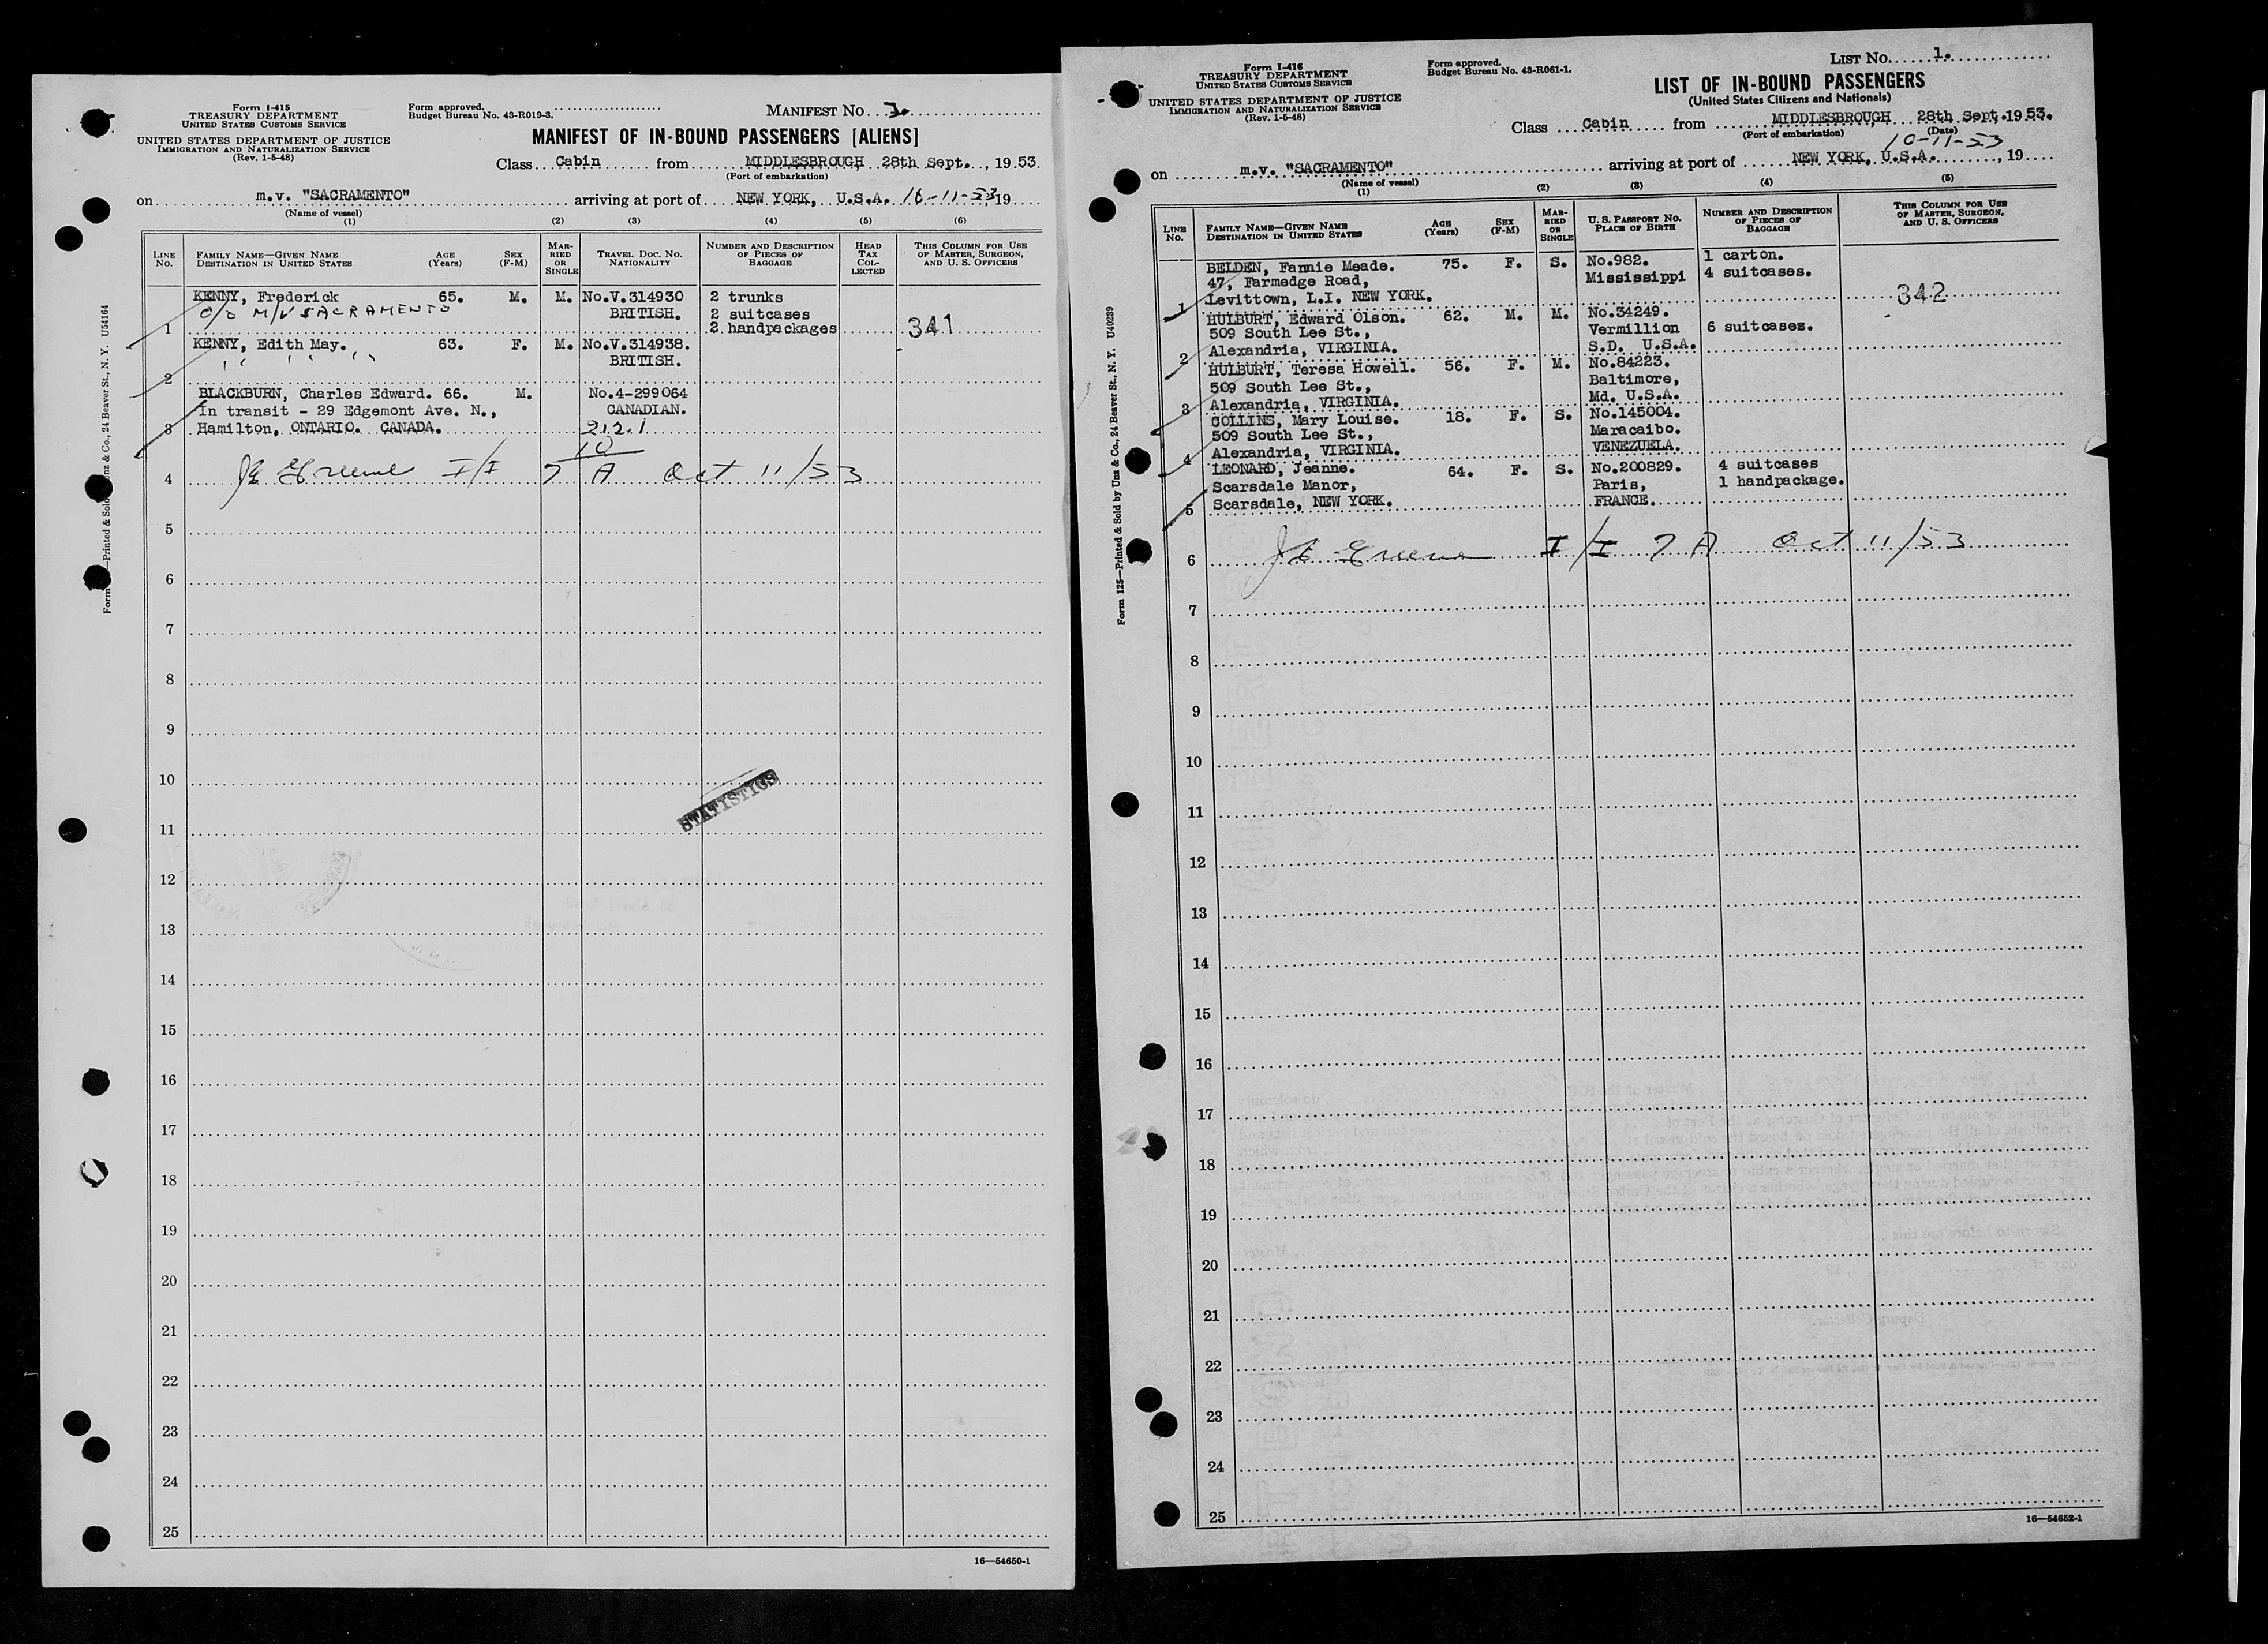 Form I-415
TREASURY DEPARTMENT
UNITED STATES CUSTOMS SERVICE
UNITED STATES DEPARTMENT OF JUSTICE
IMMIGRATION AND NATURALIZATION SERVICE
(Rev. 1-5-48)
Form approved.
Budget Bureau No. 43-R019-3.
MANIFEST No
MANIFEST OF IN-BOUND PASSENGERS [ALIENS]
Class Cabin from MIDDLESBROUGH 28th Sept., 1953.
(Port of embarkation)
on m.v. "SACRAMENTO" arriving at port of NEW YORK, U.S.A. 10-11-53, 19
(Name of vessel)
(1) (2) (3) (4) (5) (6)
LINE No. FAMILY NAME—GIVEN NAME DESTINATION IN UNITED STATES AGE (Years) SEX (F-M) MARRIED OR SINGLE TRAVEL DOC. NO. NATIONALITY NUMBER AND DESCRIPTION OF PIECES OF BAGGAGE HEAD TAX COLLECTED THIS COLUMN FOR USE OF MASTER, SURGEON, AND U. S. OFFICERS
KENNY, Frederick 65. M. M. No.V.314930 2 trunks
c/o M/V SACRAMENTO BRITISH. 2 suitcases
1 2 handpackages 341
KENNY, Edith May. 63. F. M. No.V.314938.
" " " " BRITISH.
2
BLACKBURN, Charles Edward. 66. M. No.4-299064
In transit - 29 Edgemont Ave. N., CANADIAN.
3 Hamilton, ONTARIO. CANADA. 212.1
10
4 J E Greene I/I 7 A Oct 11/53
5
6
7
8
9
10
STATISTICS
11
12
13
14
15
16
17
18
19
20
21
22
23
24
25
16—54650-1
Form I-416
TREASURY DEPARTMENT
UNITED STATES CUSTOMS SERVICE
UNITED STATES DEPARTMENT OF JUSTICE
IMMIGRATION AND NATURALIZATION SERVICE
(Rev. 1-5-48)
Form approved.
Budget Bureau No. 43-R061-1.
LIST No. 1.
LIST OF IN-BOUND PASSENGERS
(United States Citizens and Nationals)
Class Cabin from MIDDLESBROUGH, 28th Sept. 1953.
(Port of embarkation) (Date)
10-11-53
on m.v. "SACRAMENTO" arriving at port of NEW YORK, U.S.A., 19
(Name of vessel)
(1) (2) (3) (4) (5)
LINE No. FAMILY NAME—GIVEN NAME DESTINATION IN UNITED STATES AGE (Years) SEX (F-M) MARRIED OR SINGLE U. S. PASSPORT NO. PLACE OF BIRTH NUMBER AND DESCRIPTION OF PIECES OF BAGGAGE THIS COLUMN FOR USE OF MASTER, SURGEON, AND U. S. OFFICERS
BELDEN, Fannie Meade. 75. F. S. No.982. 1 carton.
47, Farmedge Road, Mississippi 4 suitcases.
1 Levittown, L.I. NEW YORK. 342
HULBURT, Edward Olson. 62. M. M. No.34249.
509 South Lee St., Vermillion 6 suitcases.
2 Alexandria, VIRGINIA. S.D. U.S.A.
HULBURT, Teresa Howell. 56. F. M. No.84223.
509 South Lee St., Baltimore,
3 Alexandria, VIRGINIA. Md. U.S.A.
COLLINS, Mary Louise. 18. F. S. No.145004.
509 South Lee St., Maracaibo.
4 Alexandria, VIRGINIA. VENEZUELA.
LEONARD, Jeanne. 64. F. S. No.200829. 4 suitcases
Scarsdale Manor, Paris, 1 handpackage.
5 Scarsdale, NEW YORK. FRANCE.
6 J E Greene I/I 7 A Oct 11/53
7
8
9
10
11
12
13
14
15
16
17
18
19
20
21
22
23
24
25
16—54652-1
Form 125—Printed & Sold by Unz & Co., 24 Beaver St., N. Y. U40239